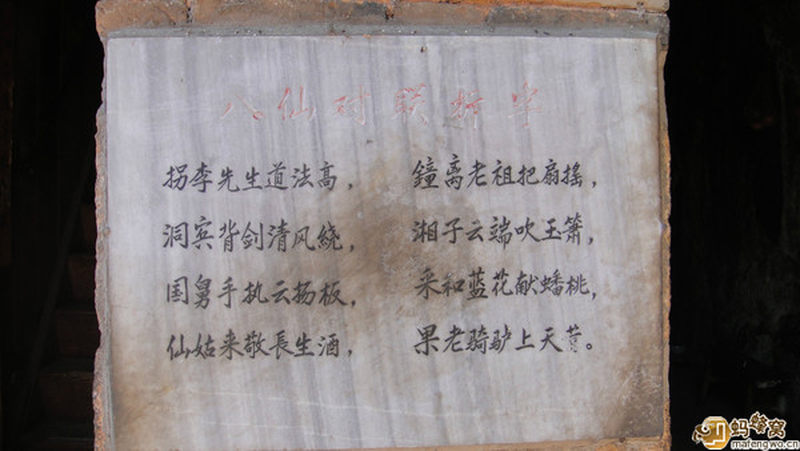 八仙对联
拐李先生道法高， 鐘离老祖把扇摇，
洞宾背剑清风繞， 湘子云端吹玉箫，
国舅手执云扬板， 采和蓝花献蟠桃，
仙姑来敬長生酒， 果老骑驴上天。
蚂蜂窝
mafengwo.cn